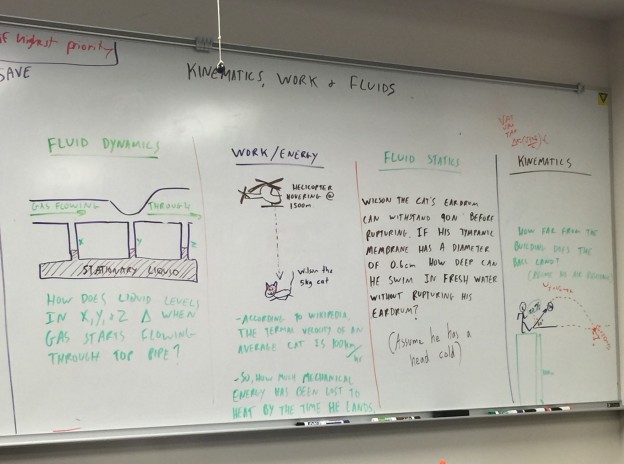 of highest priority
SAVE
KINEMATICS, WORK + FLUIDS
FLUID DYNAMICS
GAS FLOWING THROUGH
X Y Z
STATIONARY LIQUID
HOW DOES LIQUID LEVELS
IN X, Y, + Z Δ WHEN
GAS STARTS FLOWING
THROUGH TOP PIPE?
WORK/ENERGY
HELICOPTER
HOVERING @
1500m
Wilson the
sky cat
-ACCORDING TO WIKIPEDIA,
THE TERMAL VELOCITY OF AN
AVERAGE CAT IS 100km/hr
-SO, HOW MUCH MECHANICAL
ENERGY HAS BEEN LOST TO
HEAT BY THE TIME HE LANDS
FLUID STATICS
WILSON THE CAT'S EARDRUM
CAN WITHSTAND 90N BEFORE
RUPTURING. IF HIS TYMPANIC
MEMBRANE HAS A DIAMETER
OF 0.6cm HOW DEEP CAN
HE SWIM IN FRESH WATER
WITHOUT RUPTURING HIS
EARDRUM?
(Assume he has a
head cold)
KINEMATICS
HOW FAR FROM THE
BUILDING DOES THE
BALL LAND?